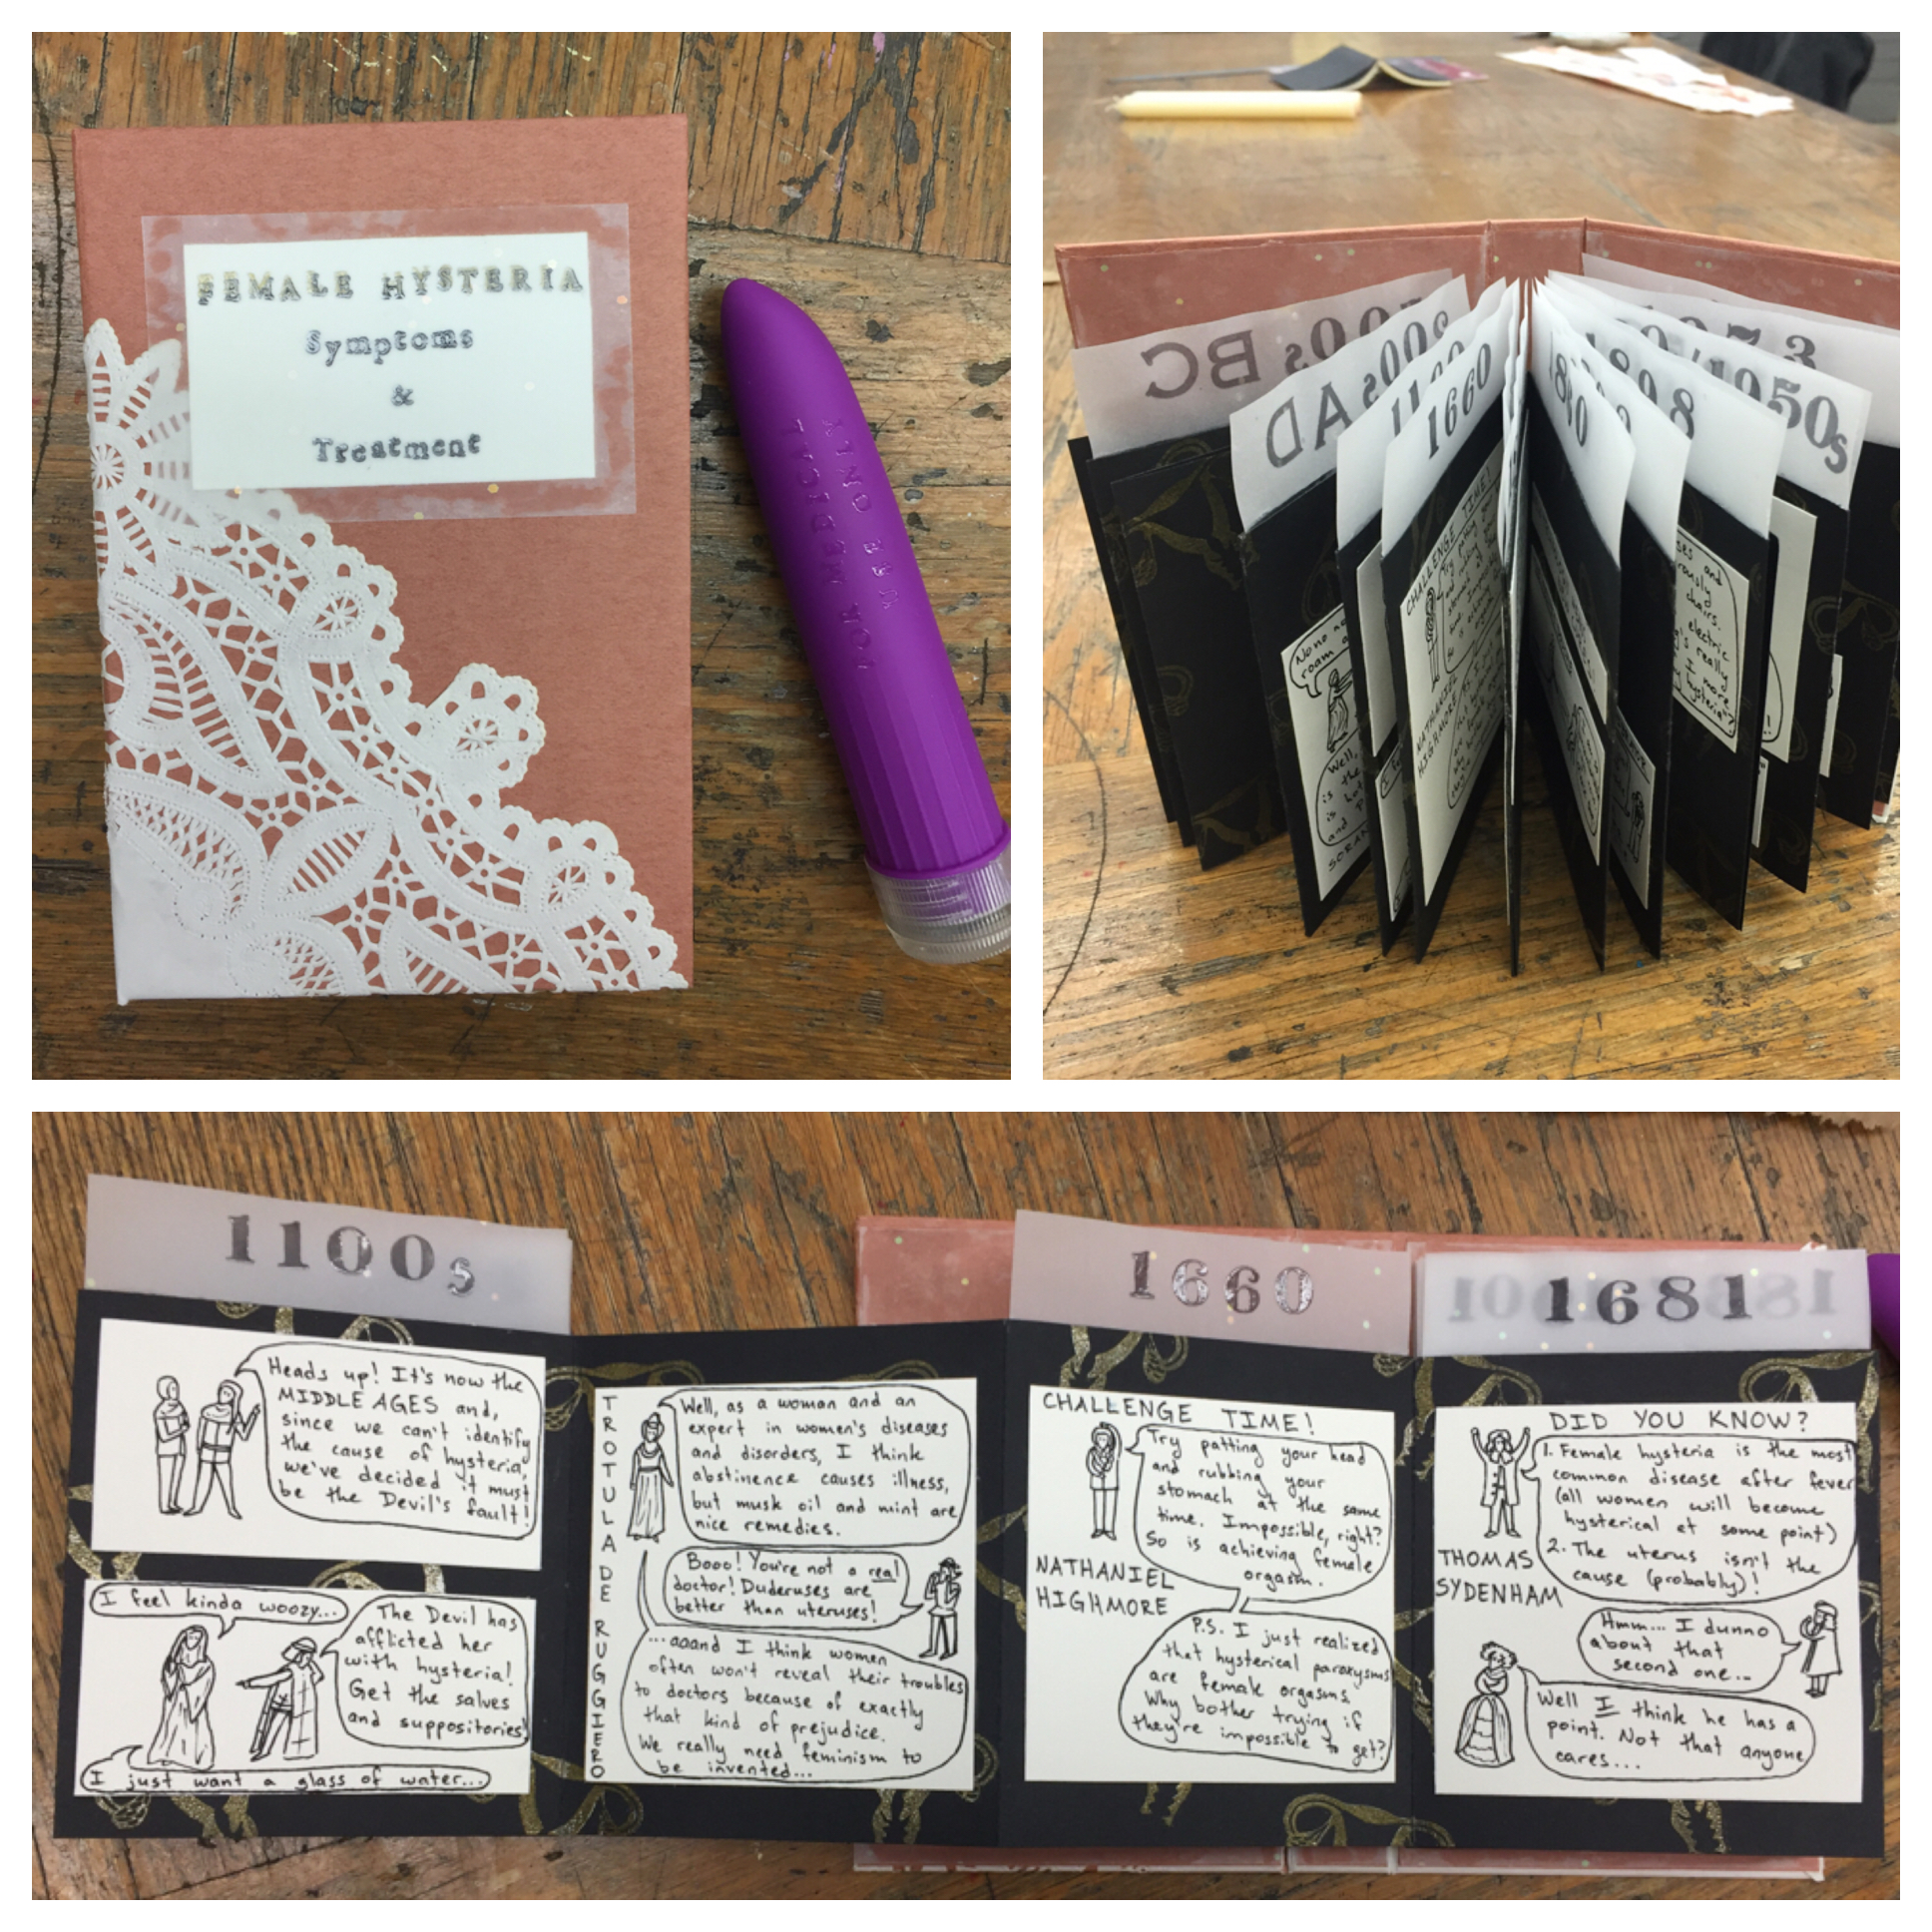 FEMALE HYSTERIA
Symptoms
&
Treatment
FOR MEDICAL
USE ONLY
BC
AD
1660
1898
1950s
CHALLENGE TIME!
NATHANIEL
HIGHMORE
1100s
Heads up! It's now the
MIDDLE AGES and,
since we can't identify
the cause of hysteria,
we've decided it must
be the Devil's fault!
I feel kinda woozy...
The Devil has
afflicted her
with hysteria!
Get the salves
and suppositories!
I just want a glass of water...
TROTULA DE RUGGIERO
Well, as a woman and an
expert in women's diseases
and disorders, I think
abstinence causes illness,
but musk oil and mint are
nice remedies.
Booo! You're not a real
doctor! Duderuses are
better than uteruses!
...aaand I think women
often won't reveal their troubles
to doctors because of exactly
that kind of prejudice.
We really need feminism to
be invented...
1660
CHALLENGE TIME!
Try patting your head
and rubbing your
stomach at the same
time. Impossible, right?
So is achieving female
orgasm.
NATHANIEL
HIGHMORE
P.S. I just realized
that hysterical paroxysms
are female orgasms.
Why bother trying if
they're impossible to get?
1681
DID YOU KNOW?
1. Female hysteria is the most
common disease after fever
(all women will become
hysterical at some point)
2. The uterus isn't the
cause (probably)!
THOMAS
SYDENHAM
Hmm... I dunno
about that
second one...
Well I think he has a
point. Not that anyone
cares...